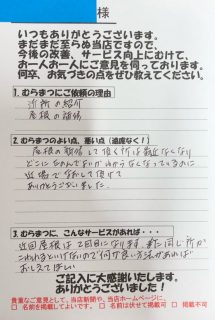 様
いつもありがとうございます。
まだまだ至らぬ当店ですので、
今後の改善、サービス向上にむけて、
お一人お一人にご意見を伺っております。
何卒、お気づきの点をぜひ教えてください。
1. むらまつにご依頼の理由
近所の紹介
屋根の雨漏
2. むらまつのよい点、悪い点(遠慮なく!)
屋根の して頂く所は最近なくなり
どこにたのんでよいかわからなくなっているのに
近場で なおして頂けて
ありがとうございました。
3. むらまつに、こんなサービスがあれば・・・
近回屋根は2回目になります。また同じ所が
こわれるといけないので何か良い方法があれば
おしえてほしい
ご記入に大感謝いたします。
ありがとうございました!
貴重なご意見として、当店新聞や、当店ホームページに、
□ 名前を掲載してよいです。 □ 名前は伏せて掲載可 □ 掲載不可